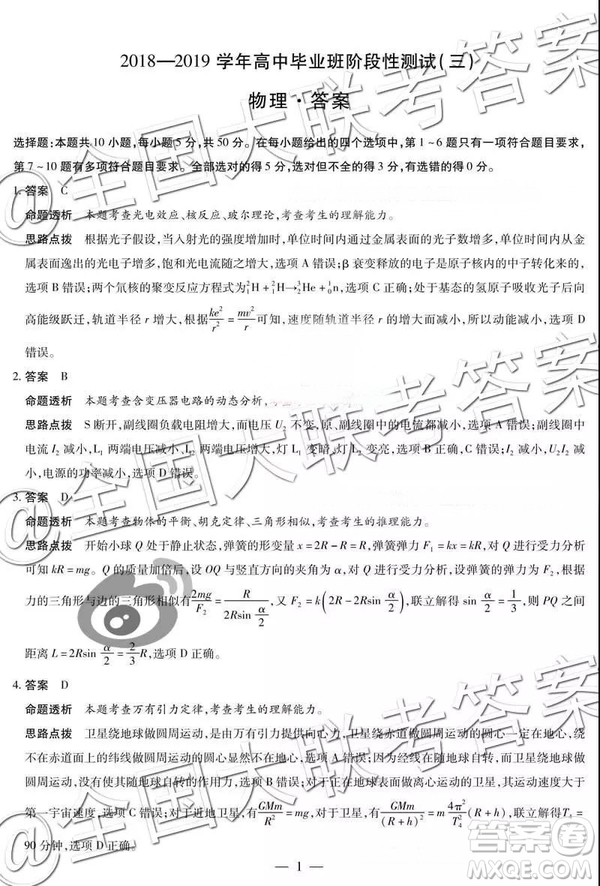 2018—2019 学年高中毕业班阶段性测试(三)
物理·答案
选择题:本题共 10 小题,每小题 5 分,共 50 分。在每小题给出的四个选项中,第 1~6 题只有一项符合题目要求,
第 7~10 题有多项符合题目要求。全部选对的得 5 分,选对但不全的得 3 分,有选错的得 0 分。
1. 答案 C
命题透析 本题考查光电效应、核反应、玻尔理论,考查考生的理解能力。
思路点拨 根据光子假设,当入射光的强度增加时,单位时间内通过金属表面的光子数增多,单位时间内从金
属表面逸出的光电子增多,饱和光电流随之增大,选项 A 错误;β 衰变释放的电子是原子核内的中子转化来的,
选项 B 错误;两个氘核的聚变反应方程式为²₁H + ²₁H→³₂He + ¹₀n,选项 C 正确;处于基态的氢原子吸收光子后向
高能级跃迁,轨道半径 r 增大,根据 ke²/r² = mv²/r 可知,速度随轨道半径 r 增大而减小,所以动能减小,选项 D
错误。
2. 答案 B
命题透析 本题考查含变压器电路的动态分析,
思路点拨 S 断开,副线圈负载电阻增大,而电压 U₂ 不变,原、副线圈中的电流都减小,选项 A 错误;副线圈中
电流 I₂ 减小,L₁ 两端电压减小,灯 L₁ 变暗,L₂ 两端电压变大,灯 L₂ 变亮,选项 B 正确,C 错误;I₂ 减小,U₂I₂ 减
小,电源的功率减小,选项 D 错误。
3. 答案 D
命题透析 本题考查物体的平衡、胡克定律、三角形相似,考查考生的推理能力。
思路点拨 开始小球 Q 处于静止状态,弹簧的形变量 x = 2R - R = R,弹簧弹力 F₁ = kx = kR,对 Q 进行受力分析
可知 kR = mg。Q 的质量加倍后,设 OQ 与竖直方向的夹角为 α,对 Q 进行受力分析,设弹簧的弹力为 F₂,根据
力的三角形与边的三角形相似有 2mg/F₂ = R/(2Rsin α/2),又 F₂ = k(2R - 2Rsin α/2),联立解得 sin α/2 = 1/3,则 PQ 之间
距离 L = 2Rsin α/2 = 2/3 R,选项 D 正确。
4. 答案 D
命题透析 本题考查万有引力定律,考查考生的理解能力。
思路点拨 卫星绕地球做圆周运动,是由万有引力提供向心力,卫星绕赤道做圆周运动的圆心在地心,而
绕不在赤道面上的纬线做圆周运动的圆心显然不在地心,选项 A 错误;静止的物体随地球自转,而卫星绕地球做圆周
运动,其绕地球自转的作用力无关,选项 B 错误;对于正在地球表面做离心运动的卫星,其发射速度应大于
第一宇宙速度,选项 C 错误;对于近地卫星,有 GMm/R² = mg,对于卫星,有 GMm/(R + h)² = m 4π²/T₄² (R + h),联立解得 T₄ =
90 分钟,选项 D 正确。
— 1 —
@全国大联考答案
答案卷